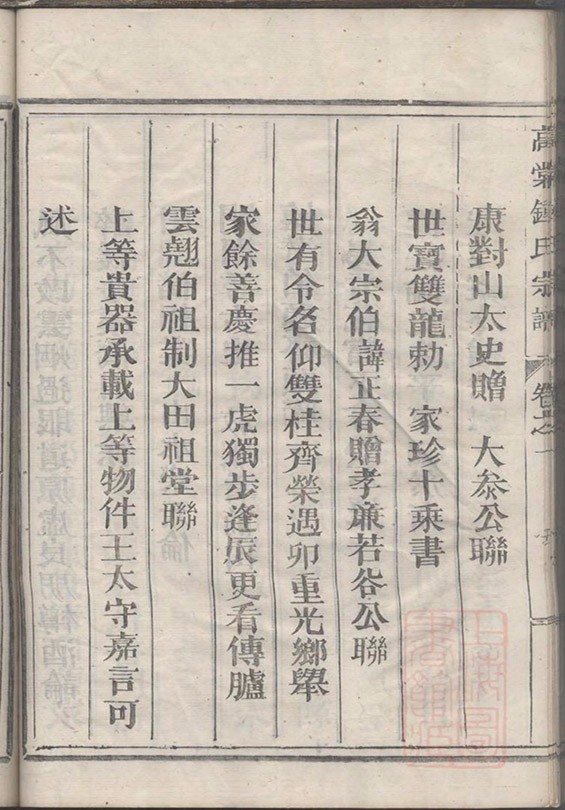 康對山太史贈　大叅公聯
世寶雙龍勅　家珍十乘書
翁大宗伯諱正春贈孝廉若谷公聯
世有令名仰雙桂齊榮遇卯重光鄉舉
家餘善慶推一虎獨步逢辰更看傳臚
雲翹伯祖制大田祖堂聯
上等貴器承載上等物件王太守嘉言可
述